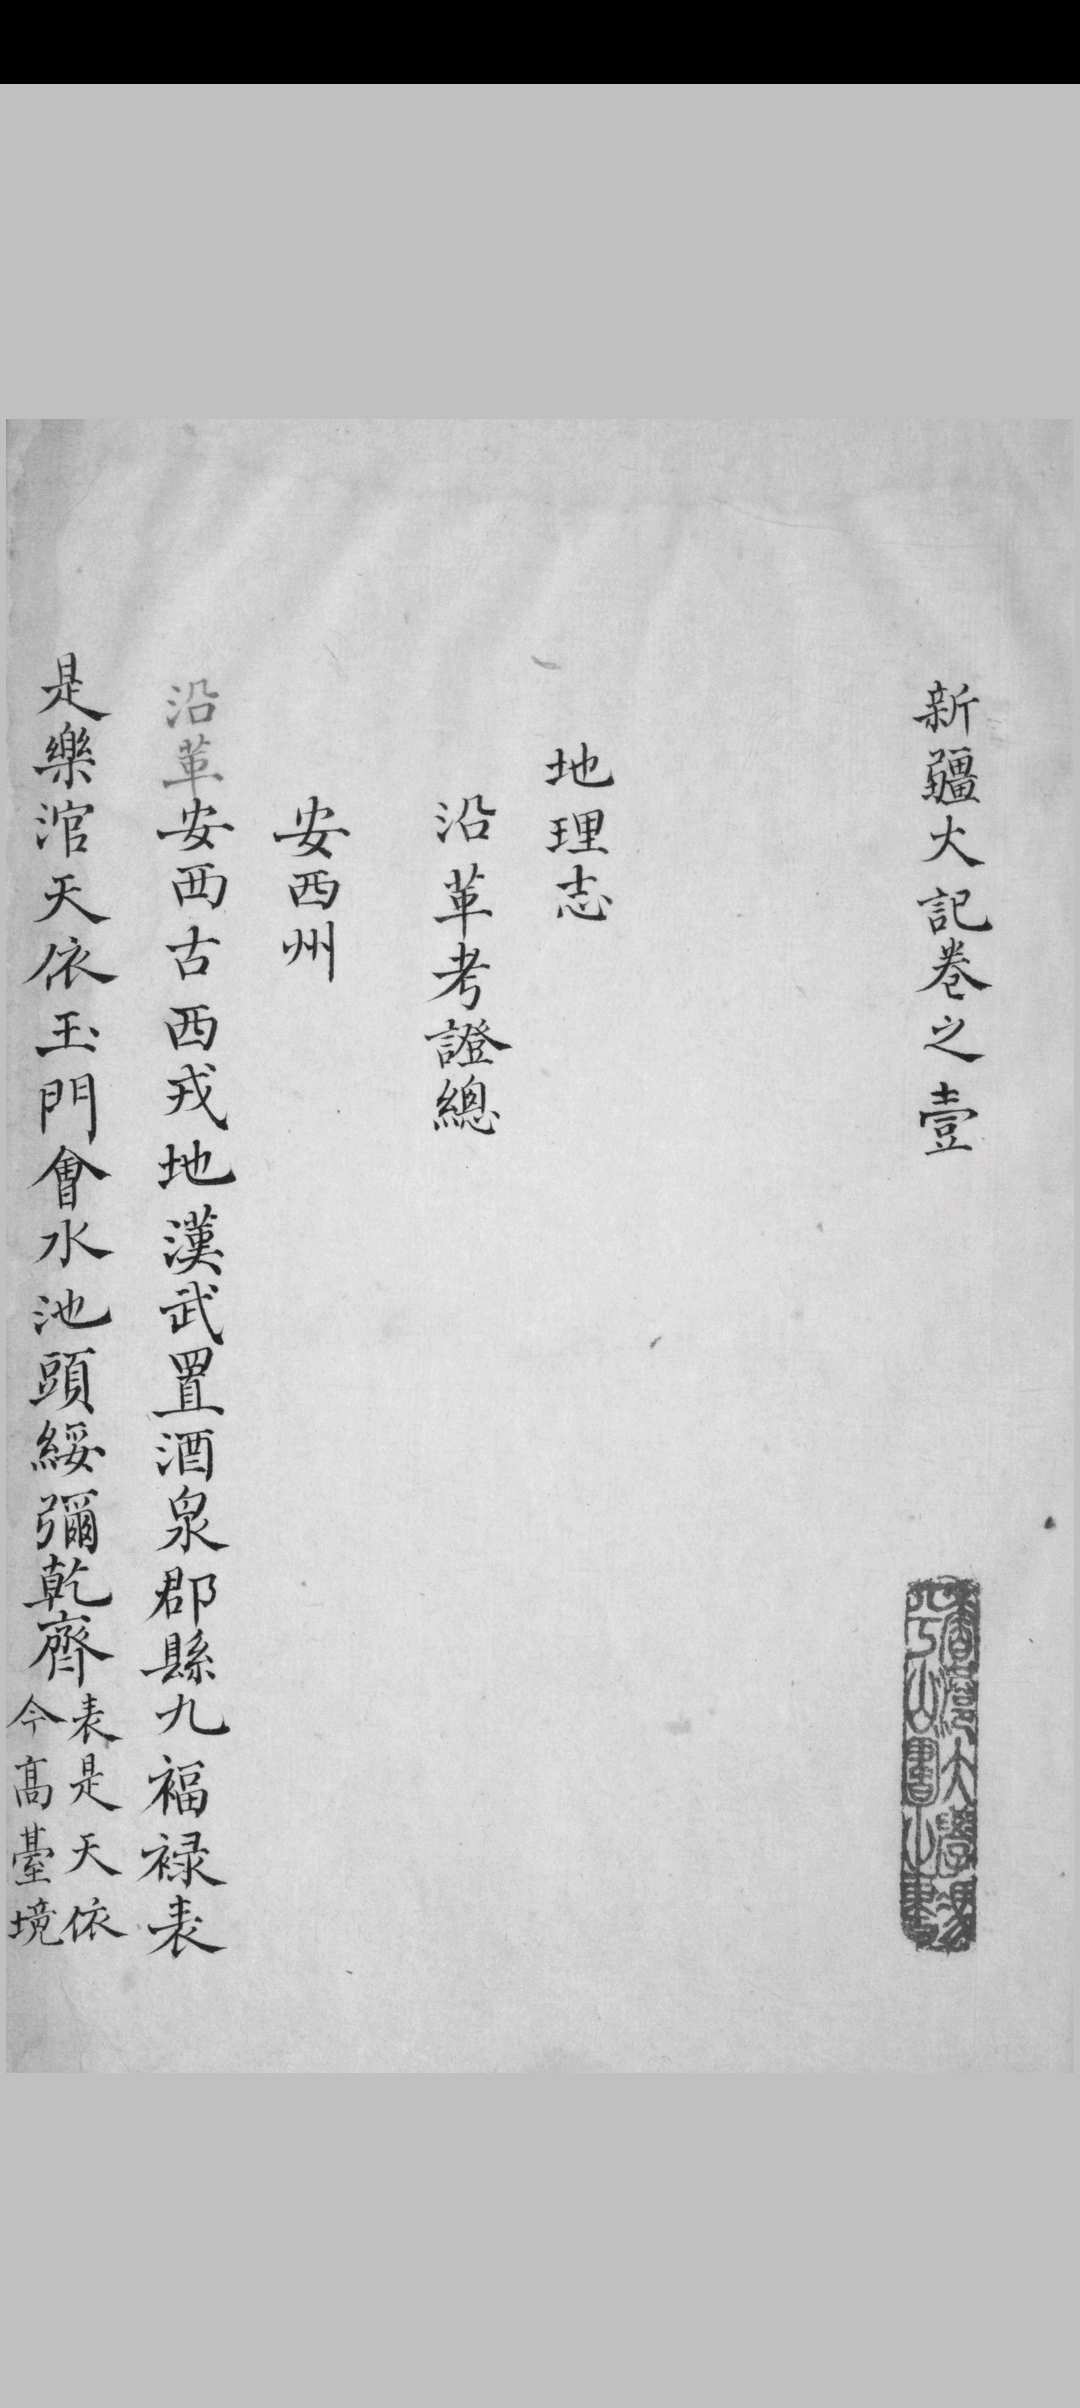 新疆大記卷之壹
地理志
沿革考證總
安西州
沿革安西古西戎地漢武置酒泉郡縣九福祿表
是樂涫天依玉門會水池頭綏彌乾齊表是天依
今高臺境